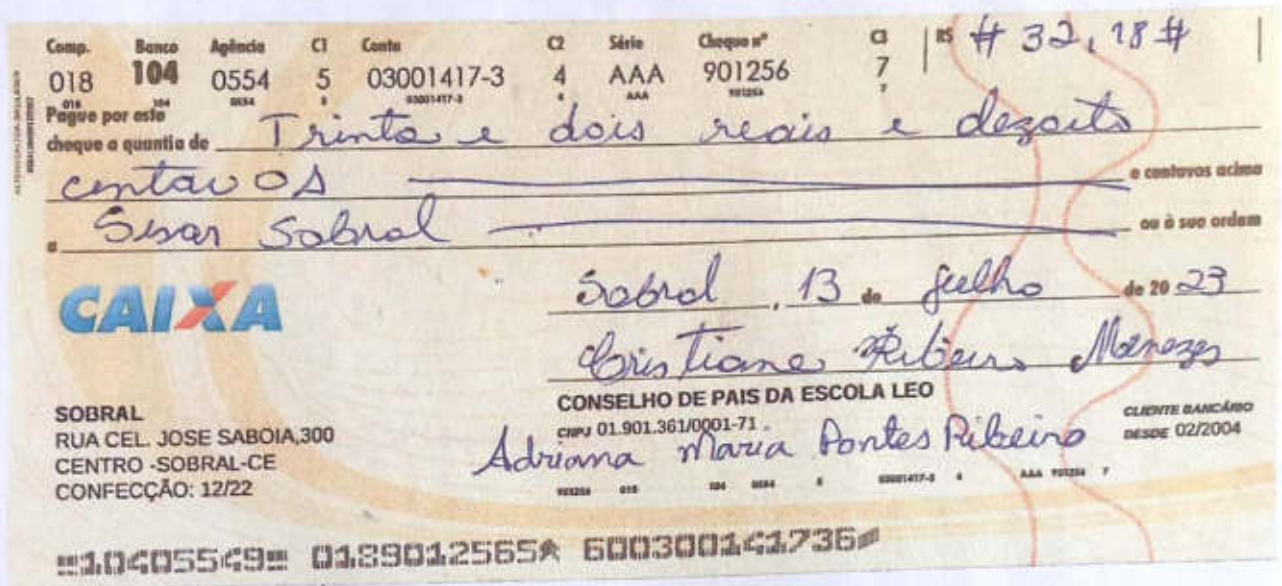 Comp. Banco Agência C1 Conta C2 Série Cheque nº C3 R$ # 32,18 #
018 104 0554 5 03001417-3 4 AAA 901256 7
018 104 0554 5 03001417-3 4 AAA 901256 7
Pague por este
cheque a quantia de Trinta e dois reais e dezoito
centavos e centavos acima
a Sisar Sobral ou à sua ordem
CAIXA
Sobral, 13 de julho de 20 23
Cristiane Ribeiro Menezes
CONSELHO DE PAIS DA ESCOLA LEO
CNPJ 01.901.361/0001-71
CLIENTE BANCÁRIO
DESDE 02/2004
Adriana Maria Pontes Ribeiro
SOBRAL
RUA CEL. JOSE SABOIA,300
CENTRO -SOBRAL-CE
CONFECÇÃO: 12/22
901256 018 104 0554 5 03001417-3 4 AAA 901256 7
10405549 0189012565 600300141736